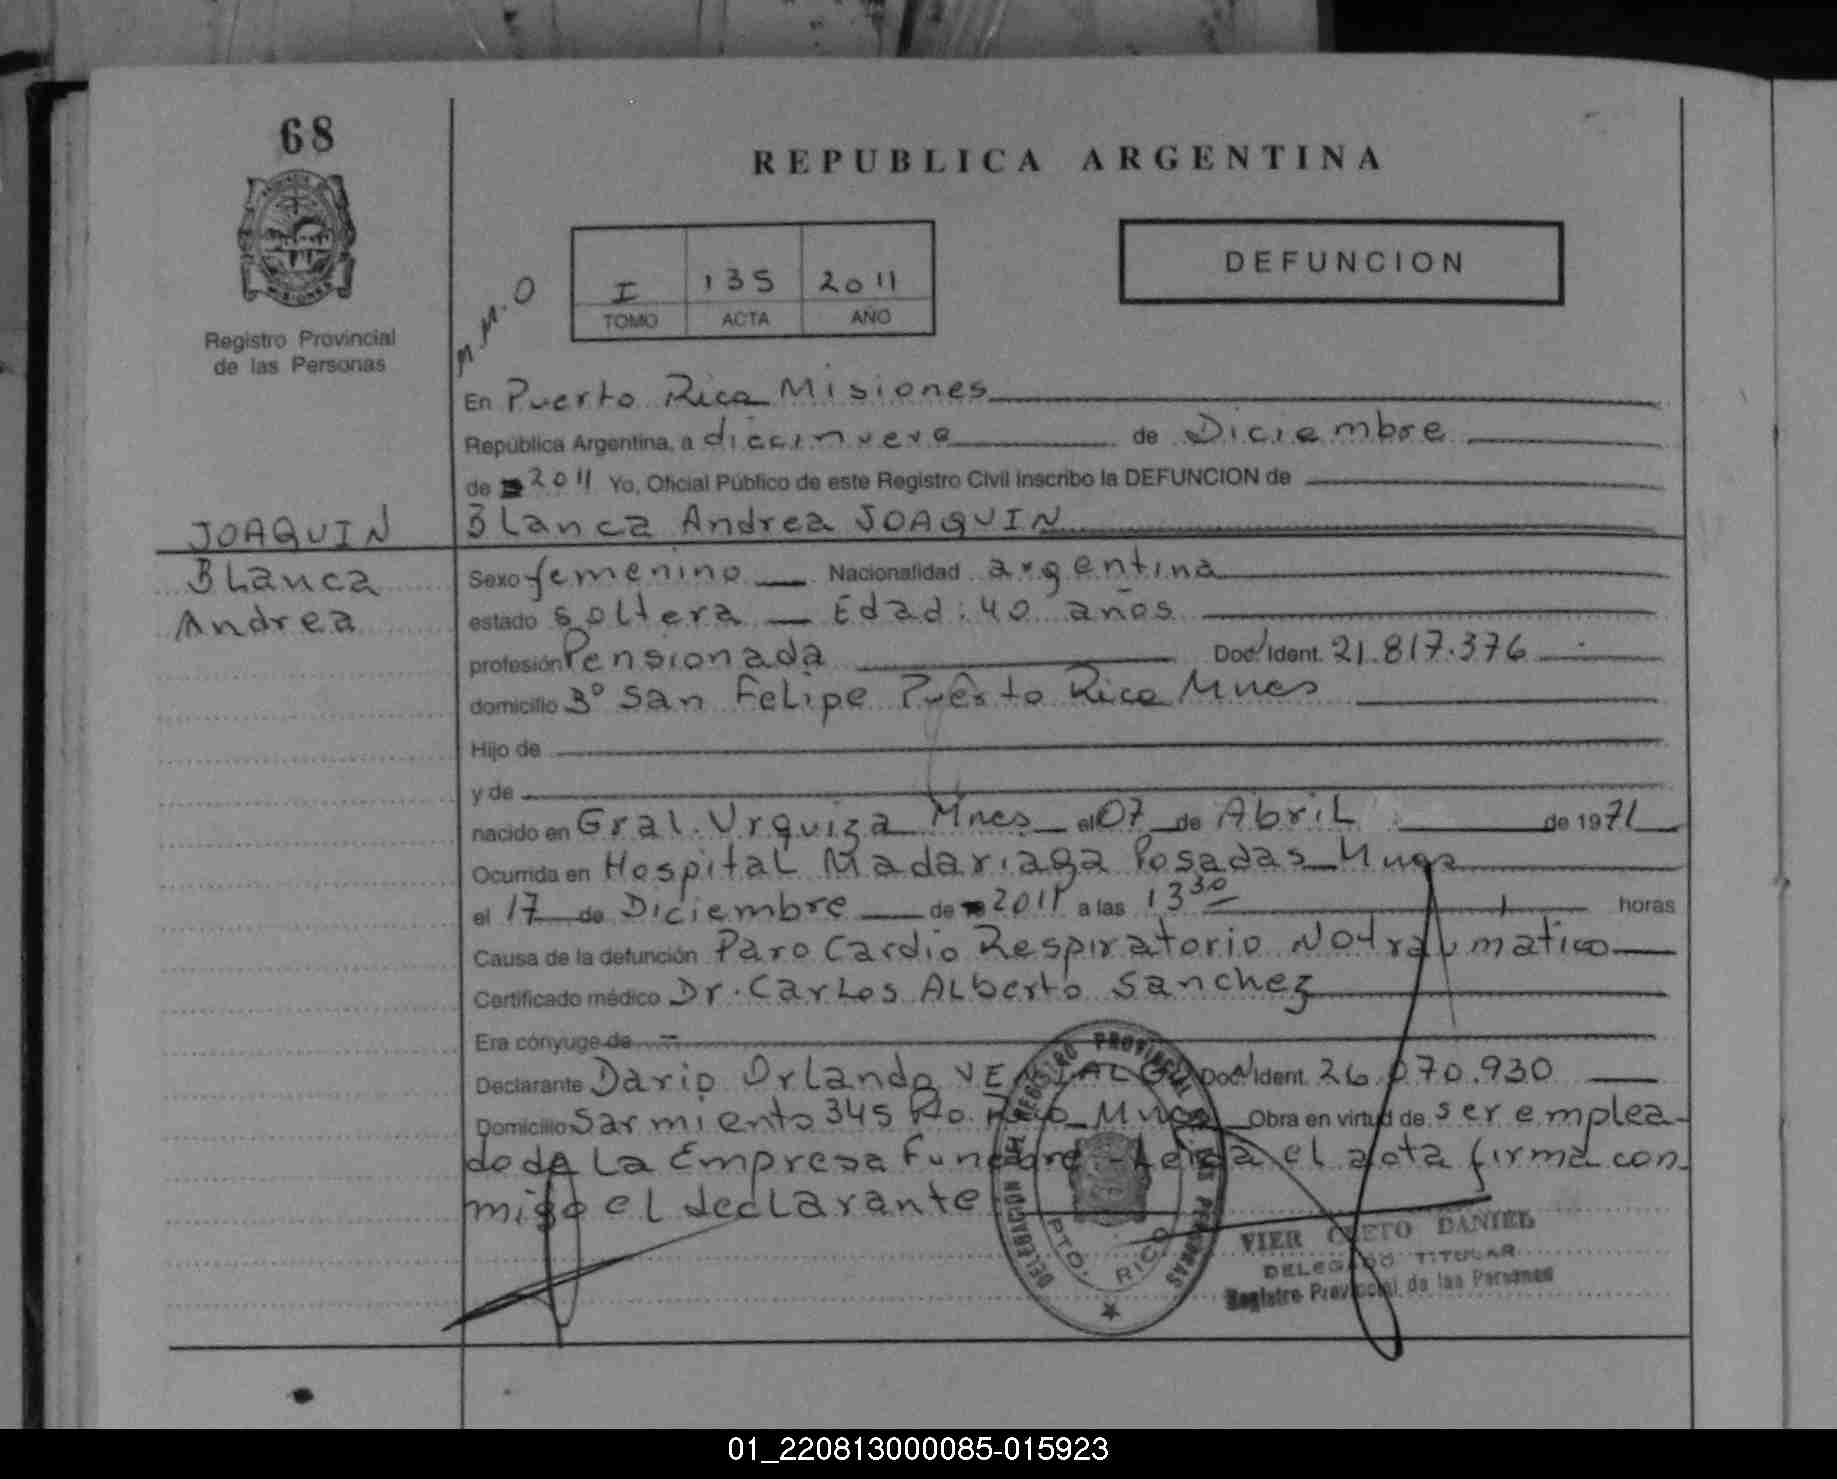 68
REPUBLICA ARGENTINA
DEFUNCION
I 135 2011
TOMO ACTA AÑO
M.M.O
Registro Provincial
de las Personas
En Puerto Rico Misiones
República Argentina, a diecinueve de Diciembre
de 2011 Yo, Oficial Público de este Registro Civil inscribo la DEFUNCION de
JOAQUIN
Blanca
Andrea
Blanca Andrea JOAQUIN
Sexo femenino Nacionalidad argentina
estado soltera Edad: 40 años
profesión Pensionada Doc. Ident. 21.817.376
domicilio Bº San Felipe Puerto Rico Mnes
Hijo de
y de
nacido en Gral. Urquiza Mnes el 07 de Abril de 1971
Ocurrida en Hospital Madariaga Posadas
el 17 de Diciembre de 2011 a las 13 30 horas
Causa de la defunción Paro Cardio Respiratorio No traumatico
Certificado médico Dr. Carlos Alberto Sanchez
Era cónyuge de
Declarante Dario Orlando Doc. Ident. 26.070.930
Domicilio Sarmiento 345 Pto. Rico Mnes Obra en virtud de ser emplea-
do de La Empresa Funebre - Leida el acta firma con-
migo el declarante
DELEGACION DEL REGISTRO PROVINCIAL DE LAS PERSONAS
PTO. RICO
VIER DANIEL
DELEGADO TITULAR
Registro Provincial de las Personas
01_220813000085-015923